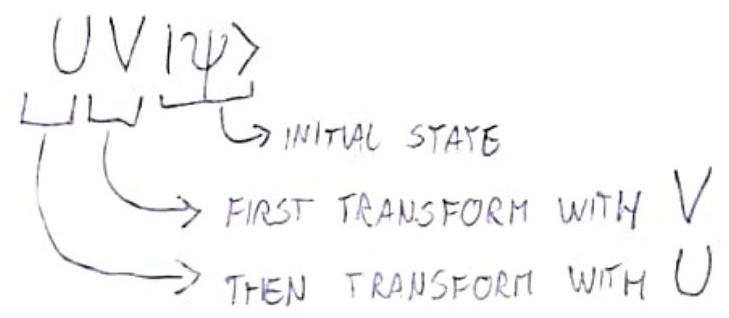 UV|ψ⟩
INITIAL STATE
FIRST TRANSFORM WITH V
THEN TRANSFORM WITH U